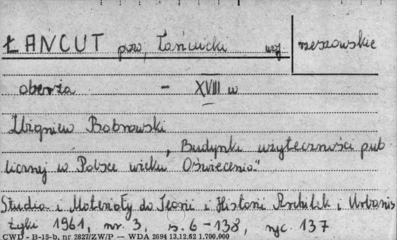 ŁAŃCUT pow. Łańcucki woj rzeszowskie
oberża - XVIII w
Zbigniew Bobrowski
„Budynki użyteczności pub
licznej w Polsce wieku Oświecenia."
Studia i Materiały do Teorii i Historii Architek i Urbanis
tyki 1961, nr. 3, s. 6-138, ryc. 137
CWD - B-15-b, nr 2827/ZW/P — WDA 2694 13.12.62 1.700.000